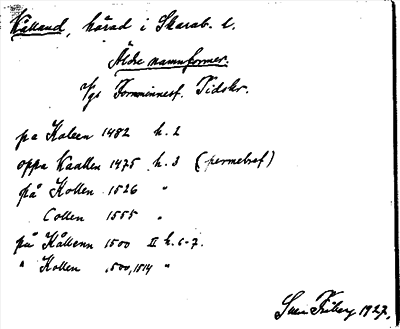 Kålland, härad i Skarab. l.
Äldre namnformer.
Vgs Fornminnesf. Tidskr.
pa Kaleen 1482 h. 2
oppa Kaallen 1475 h. 3 (permebref)
på Kollen 1526 "
Collen 1555 "
på Kållenn 1500 II h. 6-7.
" Kollen 1500, 1514 "
Sven Friberg 1927.